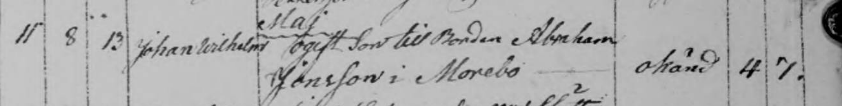 Maj
11 8 13 Johan Wilhelm ogift Son till Bonden Abraham
Jönsson i Morebo okänd 4 7.